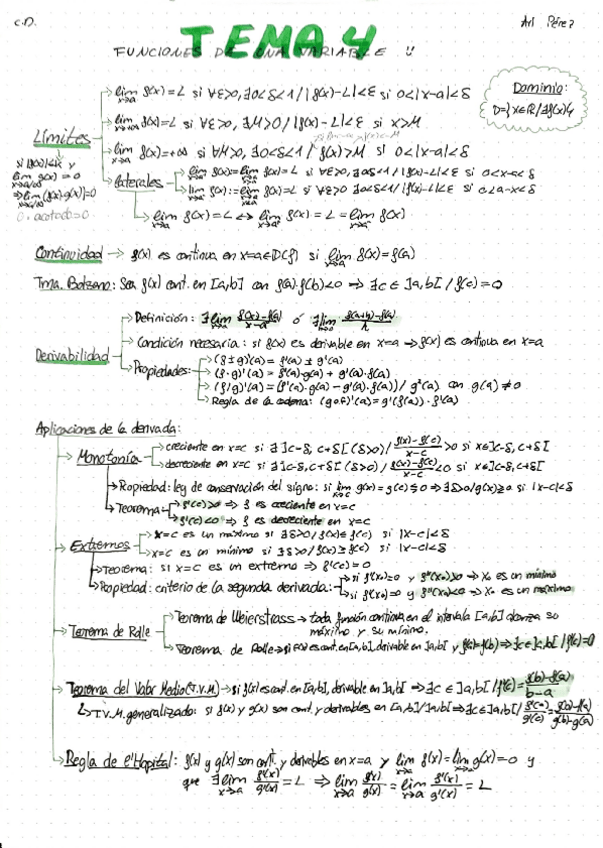 C.D.
Ari Pérez
TEMA 4
FUNCIONES DE UNA VARIABLE
Dominio:
D={x∈R/∃f(x)}
Límites
lim x→a f(x)=L si ∀ε>0, ∃0<δ<1/|f(x)-L|<ε si 0<|x-a|<δ
lim x→+∞ f(x)=L si ∀ε>0, ∃M>0/|f(x)-L|<ε si x>M
lim x→a f(x)=+∞ si ∀M>0, ∃0<δ<1/ f(x)>M si 0<|x-a|<δ
si |f(x)|<k y
lim g(x) = 0
⇒lim (f(x)·g(x))=0
0 · acotado=0
laterales
lim f(x)=L si ∀ε>0, ∃0<δ<1/|f(x)-L|<ε si 0<x-a<δ
lim f(x)=L si ∀ε>0 ∃0<δ<1/|f(x)-L|<ε si 0<a-x<δ
lim x→a f(x)=L ↔ lim x→a⁺ f(x) = L = lim x→a⁻ f(x)
Continuidad → f(x) es continua en x=a∈D(f) si lim x→a f(x)=f(a)
Tma. Bolzano: Sea f(x) cont. en [a,b] con f(a)·f(b)<0 ⇒ ∃c∈]a,b[ / f(c)=0
Derivabilidad
Definición: ∃lim x→a (f(x)-f(a))/(x-a) ó ∃lim h→0 (f(a+h)-f(a))/h
Condición necesaria: si f(x) es derivable en x=a ⇒ f(x) es continua en x=a
Propiedades:
(f±g)'(a) = f'(a) ± g'(a)
(f·g)'(a) = f'(a)·g(a) + g'(a)·f(a)
(f/g)'(a) = (f'(a)·g(a) - g'(a)·f(a))/ g²(a) con g(a)≠0
Regla de la cadena: (g∘f)'(a) = g'(f(a))·f'(a)
Aplicaciones de la derivada:
Monotonía
creciente en x=c si ∃]c-δ, c+δ[ (δ>0)/ (f(x)-f(c))/(x-c) >0 si x∈]c-δ, c+δ[
decreciente en x=c si ∃]c-δ, c+δ[ (δ>0)/ (f(x)-f(c))/(x-c) <0 si x∈]c-δ, c+δ[
Propiedad: ley de conservación del signo: si lim x→c g(x) = g(c) ≶ 0 ⇒ ∃δ>0/g(x)≷0 si |x-c|<δ
Teorema
f'(c)>0 ⇒ f es creciente en x=c
f'(c)<0 ⇒ f es decreciente en x=c
Extremos
x=c es un máximo si ∃δ>0/f(x)≤f(c) si |x-c|<δ
x=c es un mínimo si ∃δ>0/f(x)≥f(c) si |x-c|<δ
Teorema: si x=c es un extremo ⇒ f'(c)=0
Propiedad: criterio de la segunda derivada:
si f'(x₀)=0 y f''(x₀)>0 ⇒ x₀ es un mínimo
si f'(x₀)=0 y f''(x₀)<0 ⇒ x₀ es un máximo
Teorema de Rolle
Teorema de Weierstrass → toda función continua en el intervalo [a,b] alcanza su
máximo y su mínimo.
Teorema de Rolle → si f(x) es cont. en [a,b], derivable en ]a,b[ y f(a)=f(b) ⇒ ∃c∈]a,b[ / f'(c)=0
Teorema del Valor Medio (T.V.M.) → si f(x) es cont. en [a,b], derivable en ]a,b[ ⇒ ∃c∈]a,b[ / f'(c)= (f(b)-f(a))/(b-a)
T.V.M. generalizado: si f(x) y g(x) son cont. y derivables en [a,b]/]a,b[ ⇒ ∃c∈]a,b[ / f'(c)/g'(c) = (f(b)-f(a))/(g(b)-g(a))
Regla de l'Hopital: f(x) y g(x) son cont. y derivables en x=a y lim x→a f(x)=lim x→a g(x)=0 y
que ∃lim x→a f'(x)/g'(x) = L ⇒ lim x→a f(x)/g(x) = lim x→a f'(x)/g'(x) = L